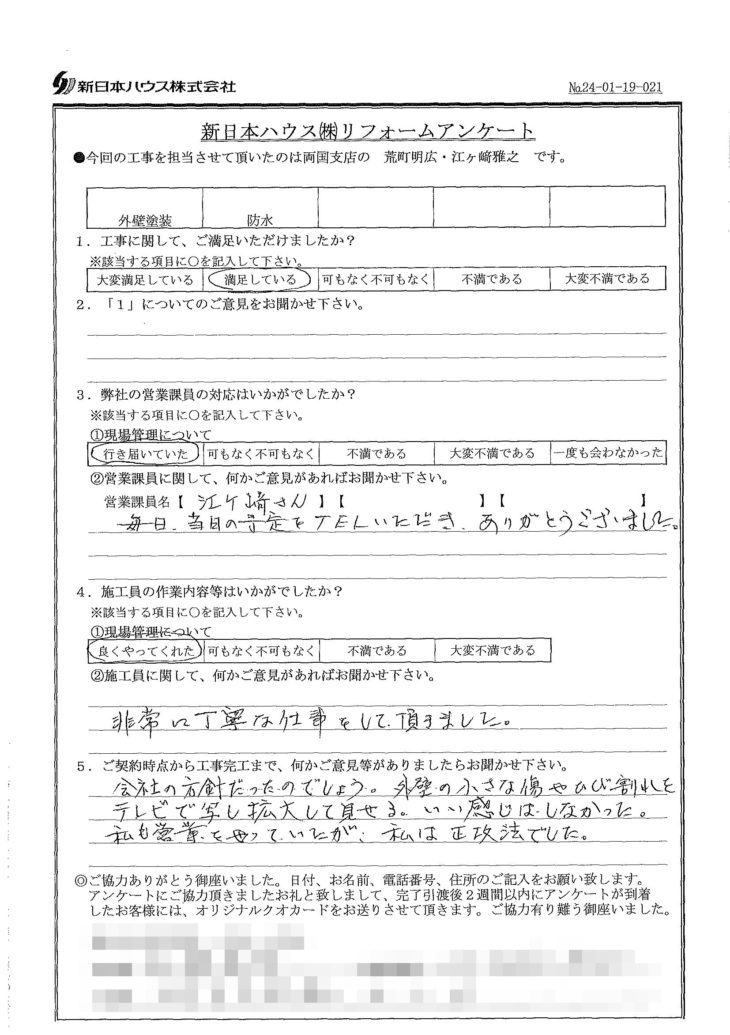 新日本ハウス株式会社
№24-01-19-021
新日本ハウス㈱リフォームアンケート
●今回の工事を担当させて頂いたのは両国支店の 荒町明広・江ヶ﨑雅之 です。
外壁塗装 防水
1．工事に関して、ご満足いただけましたか？
※該当する項目に○を記入して下さい。
大変満足している 満足している 可もなく不可もなく 不満である 大変不満である
2．「1」についてのご意見をお聞かせ下さい。
3．弊社の営業課員の対応はいかがでしたか？
※該当する項目に○を記入して下さい。
①現場管理について
行き届いていた 可もなく不可もなく 不満である 大変不満である 一度も会わなかった
②営業課員に関して、何かご意見があればお聞かせ下さい。
営業課員名【 江ケ崎さん 】【 】【 】
毎日、当日の予定をTELいただき、ありがとうございました。
4．施工員の作業内容等はいかがでしたか？
※該当する項目に○を記入して下さい。
①現場管理について
良くやってくれた 可もなく不可もなく 不満である 大変不満である
②施工員に関して、何かご意見があればお聞かせ下さい。
非常に丁寧な仕事をして頂きました。
5．ご契約時点から工事完工まで、何かご意見等がありましたらお聞かせ下さい。
会社の方針だったのでしょう。外壁の小さな傷やひび割れを
テレビで写し拡大して見せる。いい感じはしなかった。
私も営業をやっていたが、私は正攻法でした。
◎ご協力ありがとう御座いました。日付、お名前、電話番号、住所のご記入をお願い致します。
アンケートにご協力頂きましたお礼と致しまして、完了引渡後2週間以内にアンケートが到着
したお客様には、オリジナルクオカードをお送りさせて頂きます。ご協力有り難う御座いました。